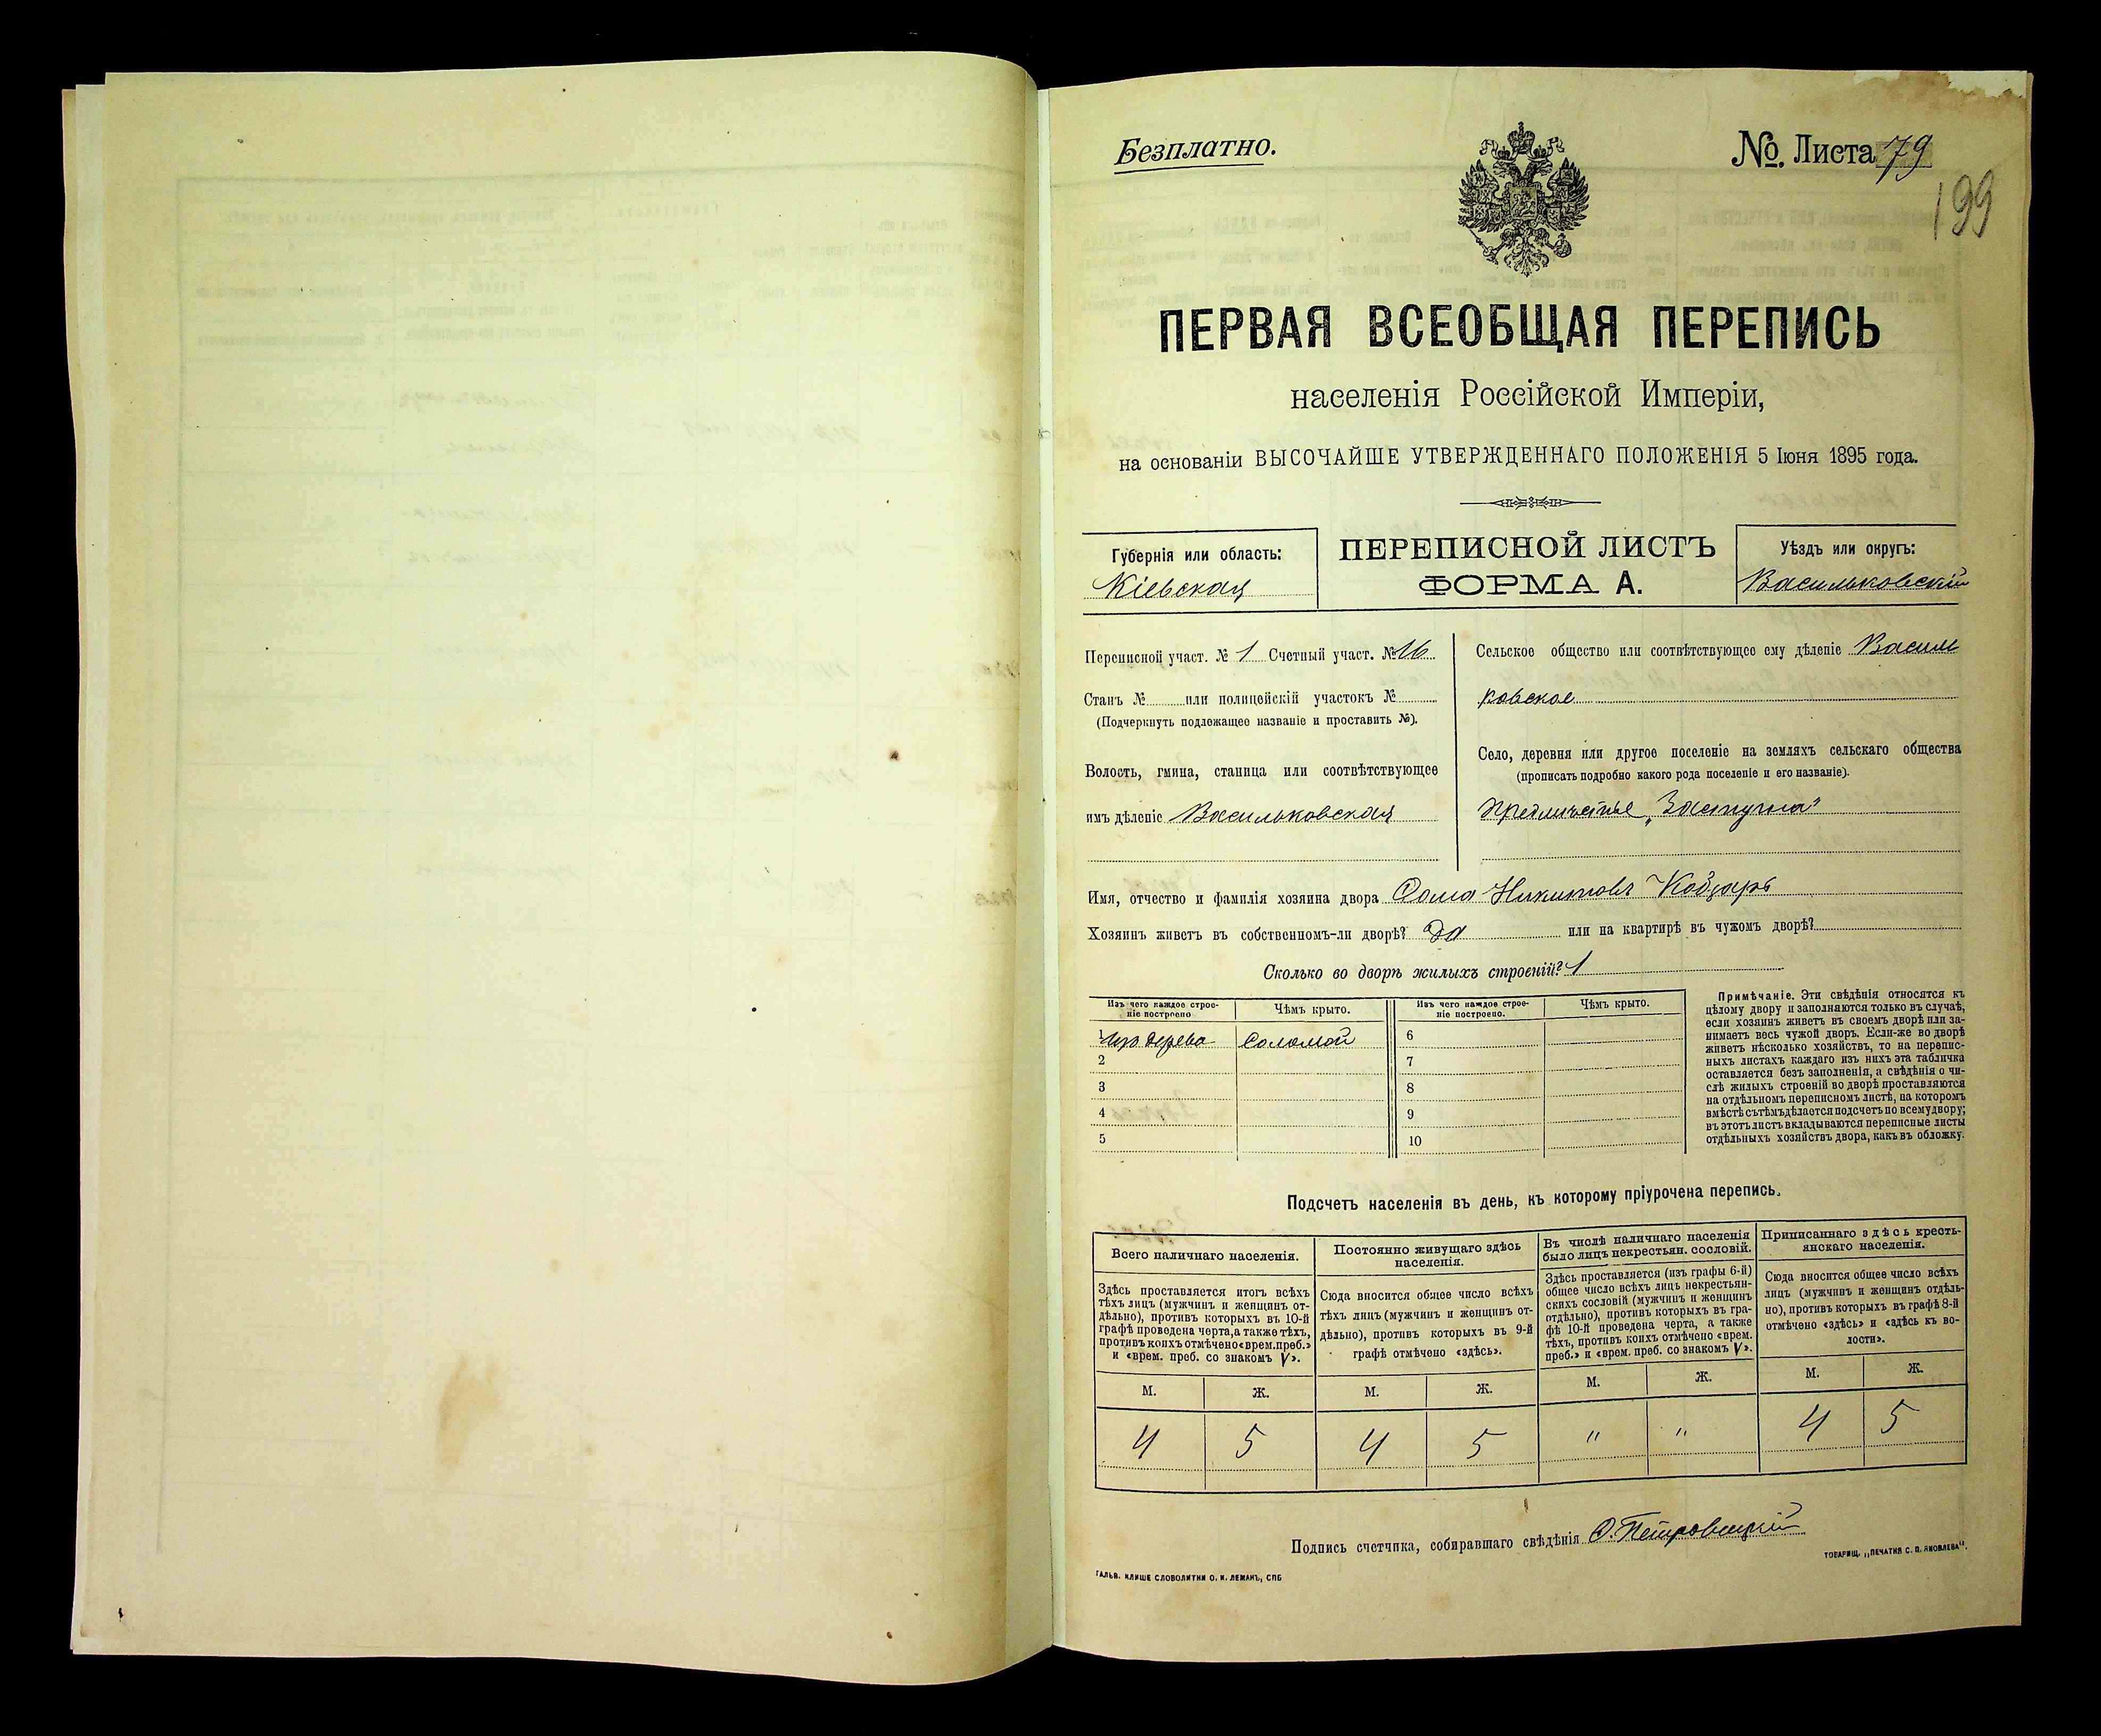 Безплатно.
№. Листа 79
199
ПЕРВАЯ ВСЕОБЩАЯ ПЕРЕПИСЬ
населенія Россійской Имперіи,
на основаніи ВЫСОЧАЙШЕ УТВЕРЖДЕННАГО ПОЛОЖЕНІЯ 5 Іюня 1895 года.
Губернія или область:
Кіевская
ПЕРЕПИСНОЙ ЛИСТЪ
ФОРМА А.
Уѣздъ или округъ:
Васильковскій
Переписной участ. № 1 Счетный участ. № 16
Станъ № или полицейскій участокъ №
(Подчеркнуть подлежащее названіе и проставить №).
Волость, гмина, станица или соотвѣтствующее
имъ дѣленіе Васильковская
Сельское общество или соотвѣтствующее ему дѣленіе Василь
ковское
Село, деревня или другое поселеніе на земляхъ сельскаго общества
(прописать подробно какого рода поселеніе и его названіе).
Предмѣстье „Застугна"
Имя, отчество и фамилія хозяина двора Никитовъ Кобзарь
Хозяинъ живетъ въ собственномъ-ли дворѣ? Да или на квартирѣ въ чужомъ дворѣ?
Сколько во дворѣ жилыхъ строеній? 1
Изъ чего каждое строе-
ніе построено
Чѣмъ крыто.
Изъ чего каждое строе-
ніе построено.
Чѣмъ крыто.
1 изъ дерева соломой 6
2 7
3 8
4 9
5 10
Примѣчаніе. Эти свѣдѣнія относятся къ
цѣлому двору и заполняются только въ случаѣ,
если хозяинъ живетъ въ своемъ дворѣ или за-
нимаетъ весь чужой дворъ. Если-же во дворѣ
живетъ нѣсколько хозяйствъ, то на перепис-
ныхъ листахъ каждаго изъ нихъ эта табличка
оставляется безъ заполненія, а свѣдѣнія о чи-
слѣ жилыхъ строеній во дворѣ проставляются
на отдѣльномъ переписномъ листѣ, на которомъ
вмѣстѣ съ тѣмъ дѣлается подсчетъ по всему двору;
въ этотъ листъ вкладываются переписные листы
отдѣльныхъ хозяйствъ двора, какъ въ обложку.
Подсчетъ населенія въ день, къ которому пріурочена перепись.
Всего наличнаго населенія.
Здѣсь проставляется итогъ всѣхъ
тѣхъ лицъ (мужчинъ и женщинъ от-
дѣльно), противъ которыхъ въ 10-й
графѣ проведена черта, а также тѣхъ,
противъ коихъ отмѣчено «врем. преб.»
и «врем. преб. со знакомъ V».
Постоянно живущаго здѣсь
населенія.
Сюда вносится общее число всѣхъ
тѣхъ лицъ (мужчинъ и женщинъ от-
дѣльно), противъ которыхъ въ 9-й
графѣ отмѣчено «здѣсь».
Въ числѣ наличнаго населенія
было лицъ некрестьян. сословій.
Здѣсь проставляется (изъ графы 6-й)
общее число всѣхъ лицъ некрестьян-
скихъ сословій (мужчинъ и женщинъ
отдѣльно), противъ которыхъ въ гра-
фѣ 10-й проведена черта, а также
тѣхъ, противъ коихъ отмѣчено «врем.
преб.» и «врем. преб. со знакомъ V».
Приписаннаго здѣсь кресть-
янскаго населенія.
Сюда вносится общее число всѣхъ
лицъ (мужчинъ и женщинъ отдѣль-
но), противъ которыхъ въ графѣ 8-й
отмѣчено «здѣсь» и «здѣсь къ во-
лости».
М. Ж. М. Ж. М. Ж. М. Ж.
4 5 4 5 " " 4 5
Подпись счетчика, собиравшаго свѣдѣнія О. Петровицкій
ГАЛЬВ. КЛИШЕ СЛОВОЛИТНИ О. И. ЛЕМАНЪ, СПБ
ТОВАРИЩ. „ПЕЧАТНЯ С. П. ЯКОВЛЕВА".